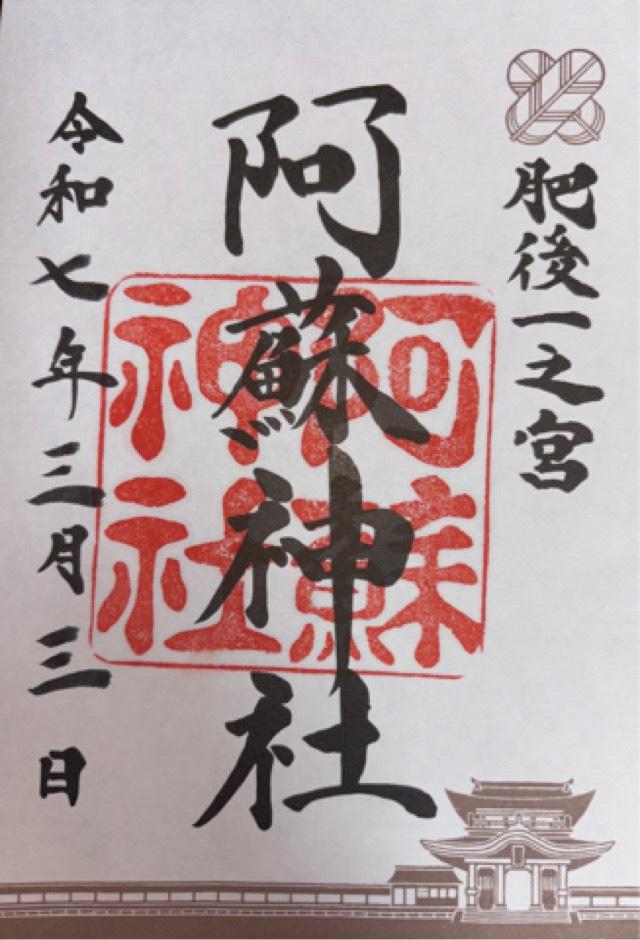 肥後一之宮
阿蘇神社
阿蘇
神社
令和七年三月三日